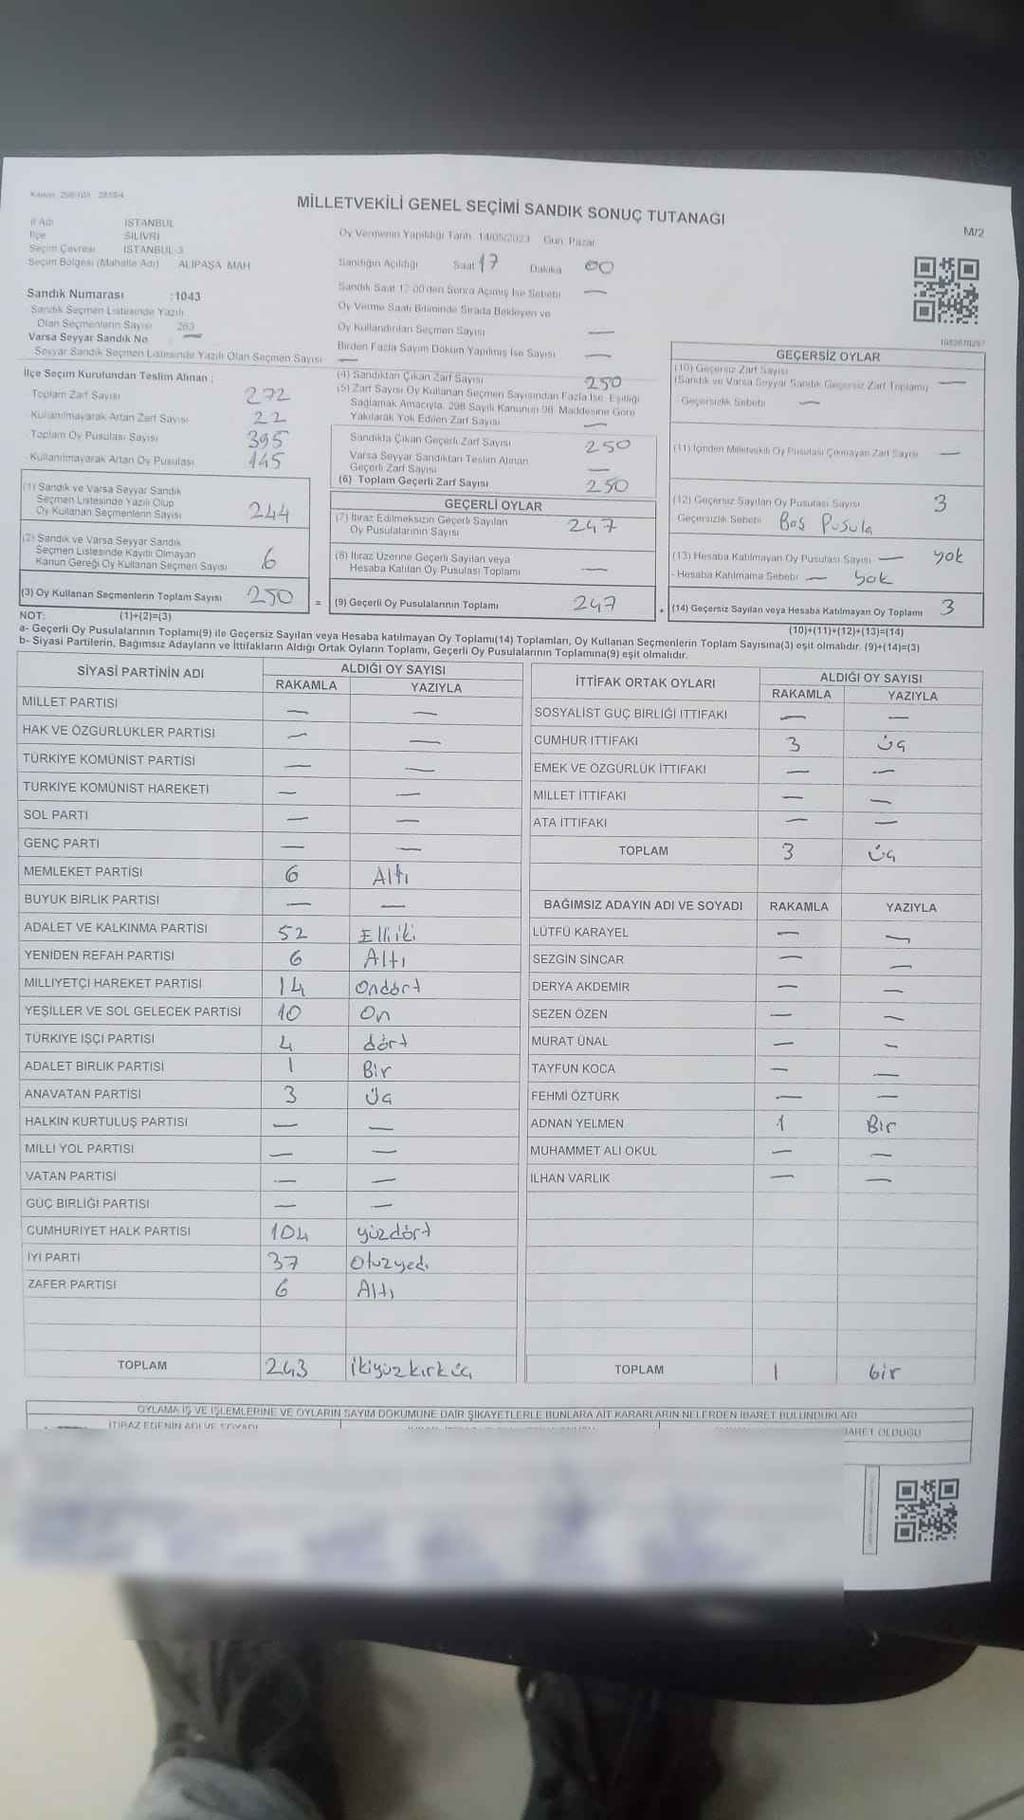 MİLLETVEKİLİ GENEL SEÇİMİ SANDIK SONUÇ TUTANAĞI
M/2
İl Adı İSTANBUL
İlçe SİLİVRİ
Seçim Çevresi İSTANBUL-3
Seçim Bölgesi (Mahalle Adı) ALİPAŞA MAH
Oy Vermenin Yapıldığı Tarih 14/05/2023 Gün Pazar
Sandığın Açıldığı Saat 17 Dakika 00
Sandık Saat 17:00'den Sonra Açılmış İse Sebebi —
Oy Verme Saati Bitiminde Sırada Bekleyen ve
Oy Kullandırılan Seçmen Sayısı —
Birden Fazla Sayım Döküm Yapılmış İse Sayısı —
Sandık Numarası :1043
Sandık Seçmen Listesinde Yazılı
Olan Seçmenlerin Sayısı 263
Varsa Seyyar Sandık No —
Seyyar Sandık Seçmen Listesinde Yazılı Olan Seçmen Sayısı —
İlçe Seçim Kurulundan Teslim Alınan :
Toplam Zarf Sayısı 272
Kullanılmayarak Artan Zarf Sayısı 22
Toplam Oy Pusulası Sayısı 395
Kullanılmayarak Artan Oy Pusulası 145
(1) Sandık ve Varsa Seyyar Sandık
Seçmen Listesinde Yazılı Olup
Oy Kullanan Seçmenlerin Sayısı 244
(2) Sandık ve Varsa Seyyar Sandık
Seçmen Listesinde Kayıtlı Olmayan
Kanun Gereği Oy Kullanan Seçmen Sayısı 6
(3) Oy Kullanan Seçmenlerin Toplam Sayısı 250 =
(4) Sandıktan Çıkan Zarf Sayısı 250
(5) Zarf Sayısı Oy Kullanan Seçmen Sayısından Fazla İse, Eşitliği
Sağlamak Amacıyla, 298 Sayılı Kanunun 98. Maddesine Göre
Yakılarak Yok Edilen Zarf Sayısı —
Sandıkta Çıkan Geçerli Zarf Sayısı 250
Varsa Seyyar Sandıktan Teslim Alınan
Geçerli Zarf Sayısı —
(6) Toplam Geçerli Zarf Sayısı 250
GEÇERLİ OYLAR
(7) İtiraz Edilmeksizin Geçerli Sayılan
Oy Pusulalarının Sayısı 247
(8) İtiraz Üzerine Geçerli Sayılan veya
Hesaba Katılan Oy Pusulası Toplamı —
(9) Geçerli Oy Pusulalarının Toplamı 247 +
GEÇERSİZ OYLAR
(10) Geçersiz Zarf Sayısı
(Sandık ve Varsa Seyyar Sandık Geçersiz Zarf Toplamı) —
Geçersizlik Sebebi —
(11) İçinden Milletvekili Oy Pusulası Çıkmayan Zarf Sayısı —
(12) Geçersiz Sayılan Oy Pusulası Sayısı 3
Geçersizlik Sebebi Boş Pusula
(13) Hesaba Katılmayan Oy Pusulası Sayısı — yok
- Hesaba Katılmama Sebebi — yok
(14) Geçersiz Sayılan veya Hesaba Katılmayan Oy Toplamı 3
NOT: (1)+(2)=(3)
(10)+(11)+(12)+(13)=(14)
a- Geçerli Oy Pusulalarının Toplamı(9) ile Geçersiz Sayılan veya Hesaba katılmayan Oy Toplamı(14) Toplamları, Oy Kullanan Seçmenlerin Toplam Sayısına(3) eşit olmalıdır. (9)+(14)=(3)
b- Siyasi Partilerin, Bağımsız Adayların ve İttifakların Aldığı Ortak Oyların Toplamı, Geçerli Oy Pusulalarının Toplamına(9) eşit olmalıdır.
SİYASİ PARTİNİN ADI ALDIĞI OY SAYISI
RAKAMLA YAZIYLA
MİLLET PARTİSİ — —
HAK VE ÖZGÜRLÜKLER PARTİSİ — —
TÜRKİYE KOMÜNİST PARTİSİ — —
TÜRKİYE KOMÜNİST HAREKETİ — —
SOL PARTİ — —
GENÇ PARTİ — —
MEMLEKET PARTİSİ 6 Altı
BÜYÜK BİRLİK PARTİSİ — —
ADALET VE KALKINMA PARTİSİ 52 Elliiki
YENİDEN REFAH PARTİSİ 6 Altı
MİLLİYETÇİ HAREKET PARTİSİ 14 Ondört
YEŞİLLER VE SOL GELECEK PARTİSİ 10 On
TÜRKİYE İŞÇİ PARTİSİ 4 dört
ADALET BİRLİK PARTİSİ 1 Bir
ANAVATAN PARTİSİ 3 Üç
HALKIN KURTULUŞ PARTİSİ — —
MİLLİ YOL PARTİSİ — —
VATAN PARTİSİ — —
GÜÇ BİRLİĞİ PARTİSİ — —
CUMHURİYET HALK PARTİSİ 104 yüzdört
İYİ PARTİ 37 Otuzyedi
ZAFER PARTİSİ 6 Altı
TOPLAM 243 ikiyüzkırküç
İTTİFAK ORTAK OYLARI ALDIĞI OY SAYISI
RAKAMLA YAZIYLA
SOSYALİST GÜÇ BİRLİĞİ İTTİFAKI — —
CUMHUR İTTİFAKI 3 üç
EMEK VE ÖZGÜRLÜK İTTİFAKI — —
MİLLET İTTİFAKI — —
ATA İTTİFAKI — —
TOPLAM 3 üç
BAĞIMSIZ ADAYIN ADI VE SOYADI RAKAMLA YAZIYLA
LÜTFÜ KARAYEL — —
SEZGİN SİNCAR — —
DERYA AKDEMİR — —
SEZEN ÖZEN — —
MURAT ÜNAL — —
TAYFUN KOCA — —
FEHMİ ÖZTÜRK — —
ADNAN YELMEN 1 Bir
MUHAMMET ALİ OKUL — —
İLHAN VARLIK — —
TOPLAM 1 bir
OYLAMA İŞ VE İŞLEMLERİNE VE OYLARIN SAYIM DÖKÜMÜNE DAİR ŞİKAYETLERLE BUNLARA AİT KARARLARIN NELERDEN İBARET BULUNDUKLARI
İTİRAZ EDENİN ADI VE SOYADI
İBARET OLDUĞU